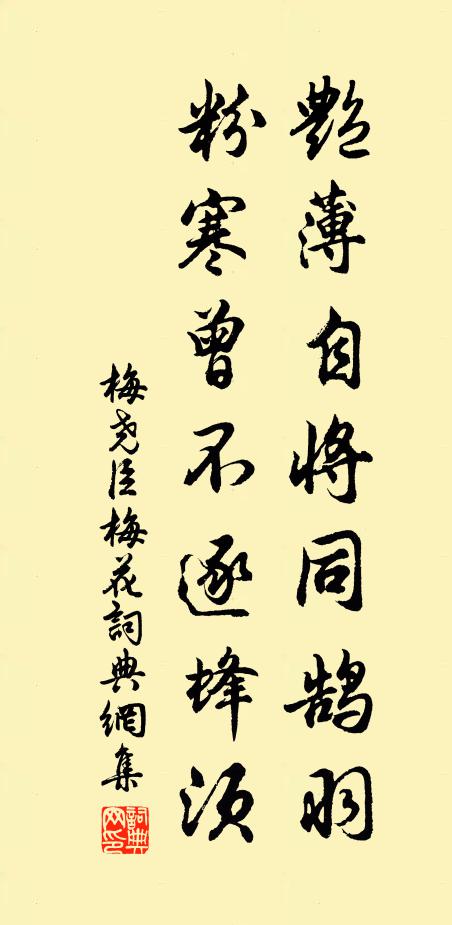 艷薄自將同鹄羽
粉寒曾不逐蜂须
梅尧臣梅花詞典網集
詞典
网印